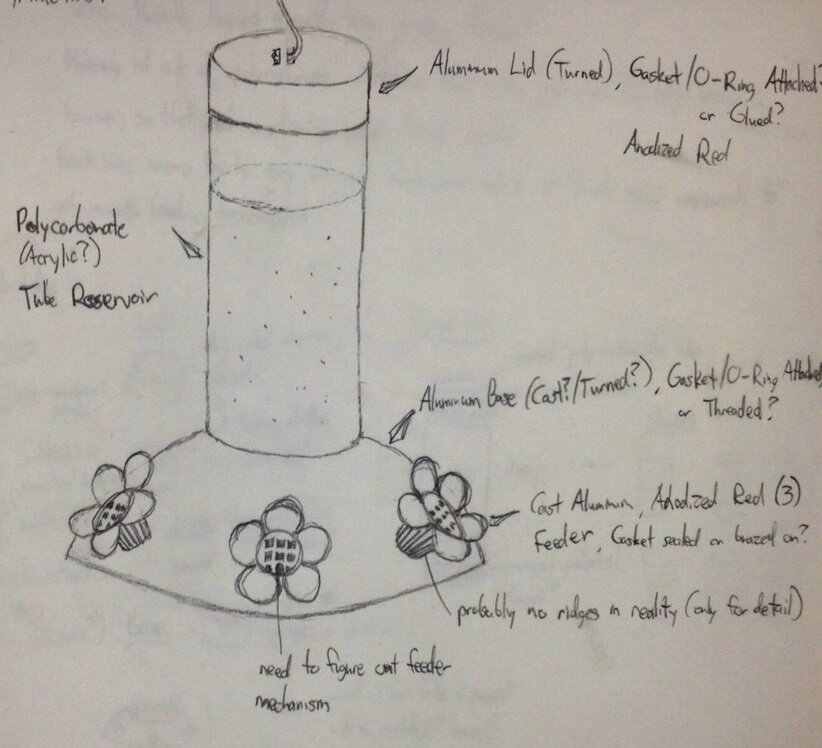 Aluminum Lid (Turned), Gasket/O-Ring Attached?
or Glued?
Anodized Red
Polycarbonate
(Acrylic?)
Tube Reservoir
Aluminum Base (Cast?/Turned?), Gasket/O-Ring Attached
or Threaded?
Cast Aluminum, Anodized Red (3)
Feeder, Gasket sealed or brazed on?
probably no ridges in reality (only for detail)
need to figure out feeder
mechanism